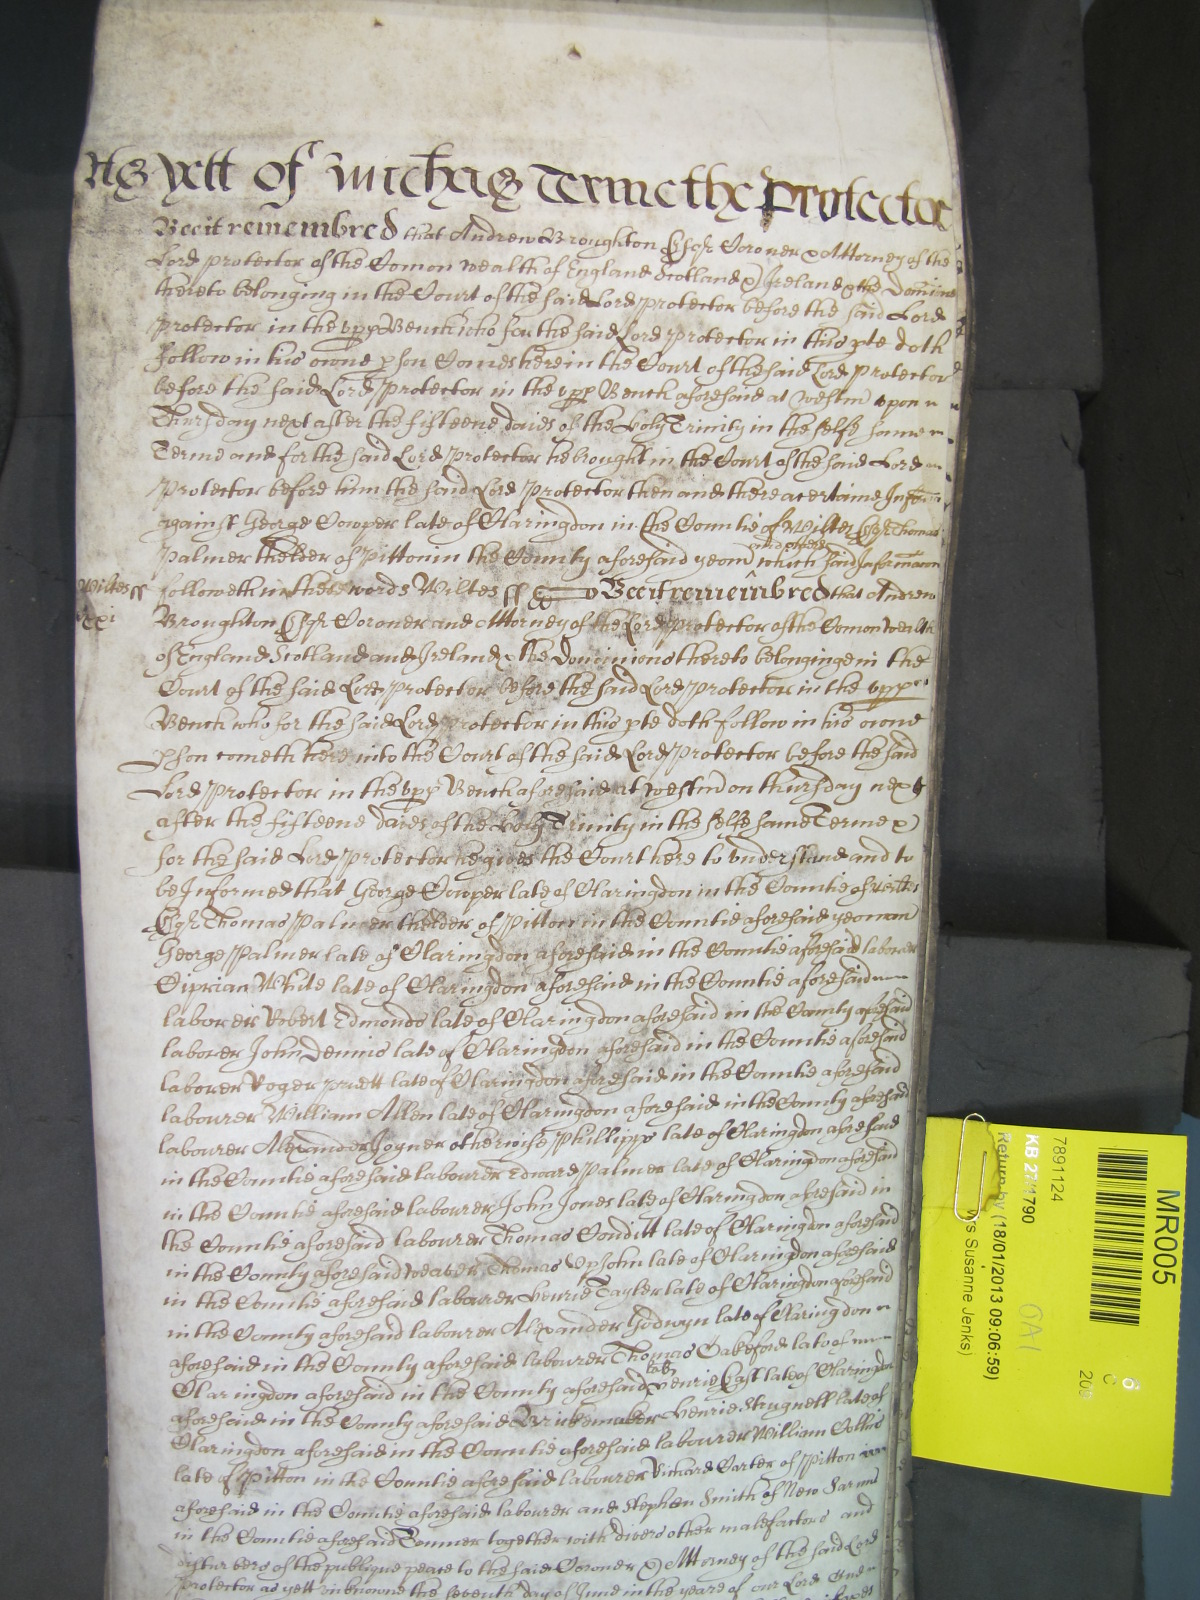 As yett of Michas Terme the Protector
Bee it remembred that Andrew Broughton Esqr Coroner & Attorney of the
Lord Protector of the Comon wealth of England Scotland & Ireland & the Domin
thereto belonging in the Court of the said Lord Protector before the said Lord
Protector in the upp Bench who for the said Lord Protector in this pte doth
follow in his owne pson Comes here in the Court of the said Lord Protector
before the said Lord Protector in the upp Bench aforesaid at Westm upon
Thursday next after the fifteene daies of the holy Trinity in the selfe same
Terme and for the said Lord Protector he brought in the Court of the said Lord
Protector before him the said Lord Protector then and there a certaine Infor
against George Cowper late of Claringdon in the Countie of Wiltes Esqr Thomas
Palmer thelder of Pitton in the County aforesaid yeom and others which said Informacon
Wiltes ss followeth in these words Wiltes ss Bee it remembred that Andrew
xxi Broughton Esqr Coroner and Attorney of the Lord Protector of the Comon wealth
of England Scotland and Ireland & the Dominions thereto belonginge in the
Court of the said Lord Protector before the said Lord Protector in the upp
Bench who for the said Lord Protector in this pte doth follow in his owne
pson cometh here into the Court of the said Lord Protector before the said
Lord Protector in the upp Bench aforesaid at Westm on thursday next
after the fifteene daies of the holy Trinity in the selfe same Terme &
for the said Lord Protector he gives the Court here to understand and to
be Informed that George Cowper late of Claringdon in the Countie of Wiltes
Esqr Thomas Palmer thelder of Pitton in the Countie aforesaid yeoman
George Palmer late of Claringdon aforesaid in the Countie aforesaid laborer
Ciprian White late of Claringdon aforesaid in the Countie aforesaid
laborer Robert Edmonds late of Claringdon aforesaid in the County aforesaid
laborer John Dennis late of Claringdon aforesaid in the Countie aforesaid
laborer Roger Pruett late of Claringdon aforesaid in the Countie aforesaid
labourer William Allen late of Claringdon aforesaid in the County aforesaid
labourer Alexander Joyner otherwise Phillipps late of Claringdon aforesaid
in the Countie aforesaid labourer Edward Palmer late of Claringdon aforesaid
in the Countie aforesaid labourer John Jones late of Claringdon aforesaid in
the Countie aforesaid labourer Thomas Conditt late of Claringdon aforesaid
in the County aforesaid weaver Thomas Upsohn late of Claringdon aforesaid
in the Countie aforesaid labourer Henrie Tayler late of Claringdon aforesaid
in the County aforesaid labourer Alexander Godwyn late of Claringdon
aforesaid in the County aforesaid labourer Thomas Oakeford late of
Claringdon aforesaid in the County aforesaid Henrie East late of Claringdon
aforesaid in the County aforesaid Brickemaker Henrie Strugnell late of
Claringdon aforesaid in the Countie aforesaid labourer William Collins
late of Pitton in the Countie aforesaid labourer Richard Carter of Pitton
aforesaid in the Countie aforesaid labourer and Stephen Smith of New Sarum
in the Countie aforesaid Tanner together with divers other malefactors and
disturbers of the publique peace to the said Coroner & Attorney of the said Lord
Protector as yett unknowne the seventh day of June in the yeare of our Lord one
MR005
7891124
KB 27/1790
Return by (18/01/2013 09:06:59)
Susanne Jenks)